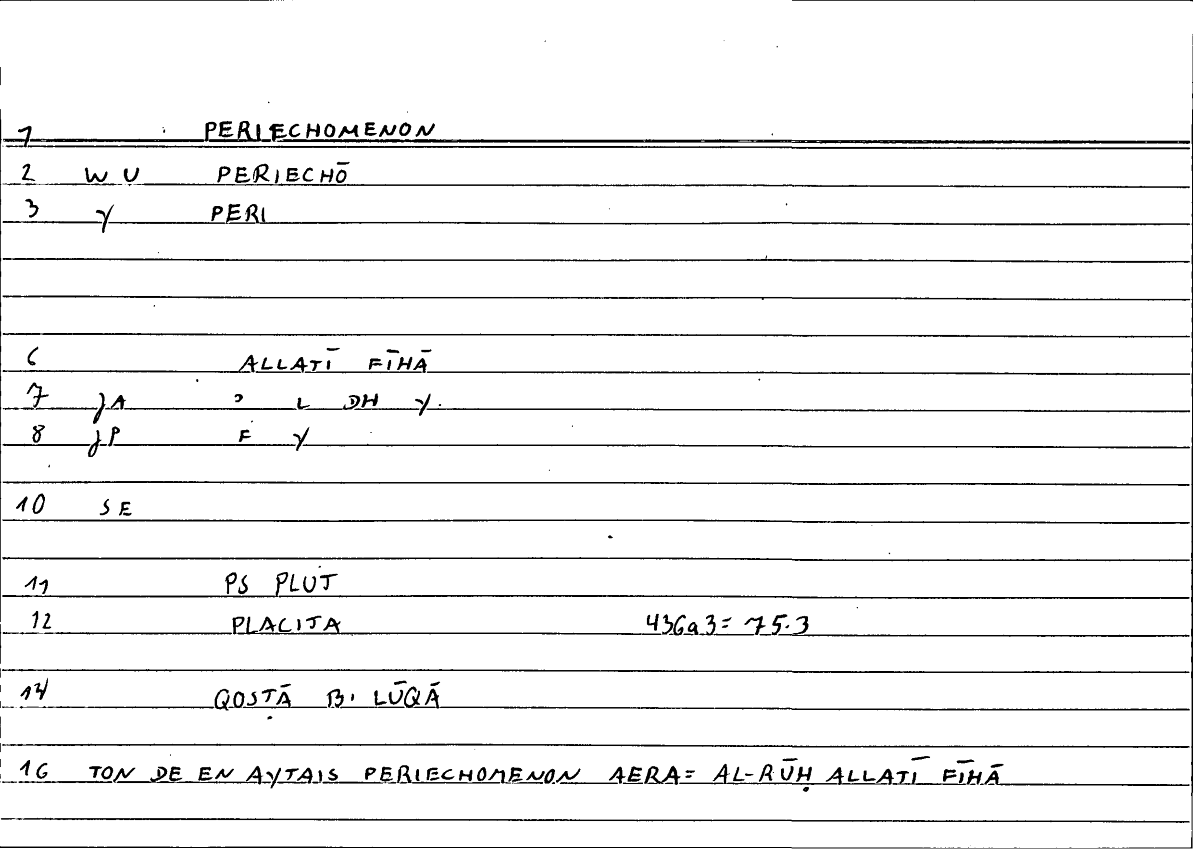 1 PERIECHOMENON
2 W U PERIECHŌ
3 Y PERI
6 ALLATĪ FĪHĀ
7 JA ʾ L DH Y
8 JP F Y
10 SE
11 PS PLUT
12 PLACITA 436a3= 75.3
14 QOSṬĀ B. LŪQĀ
16 TON DE EN AYTAIS PERIECHOMENON AERA= AL-RŪḤ ALLATĪ FĪHĀ